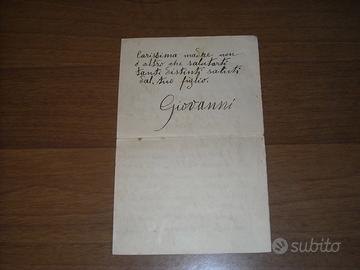 Carissima madre non
o altro che salutarti
tanti distinti saluti
dal tuo figlio.
Giovanni
subito